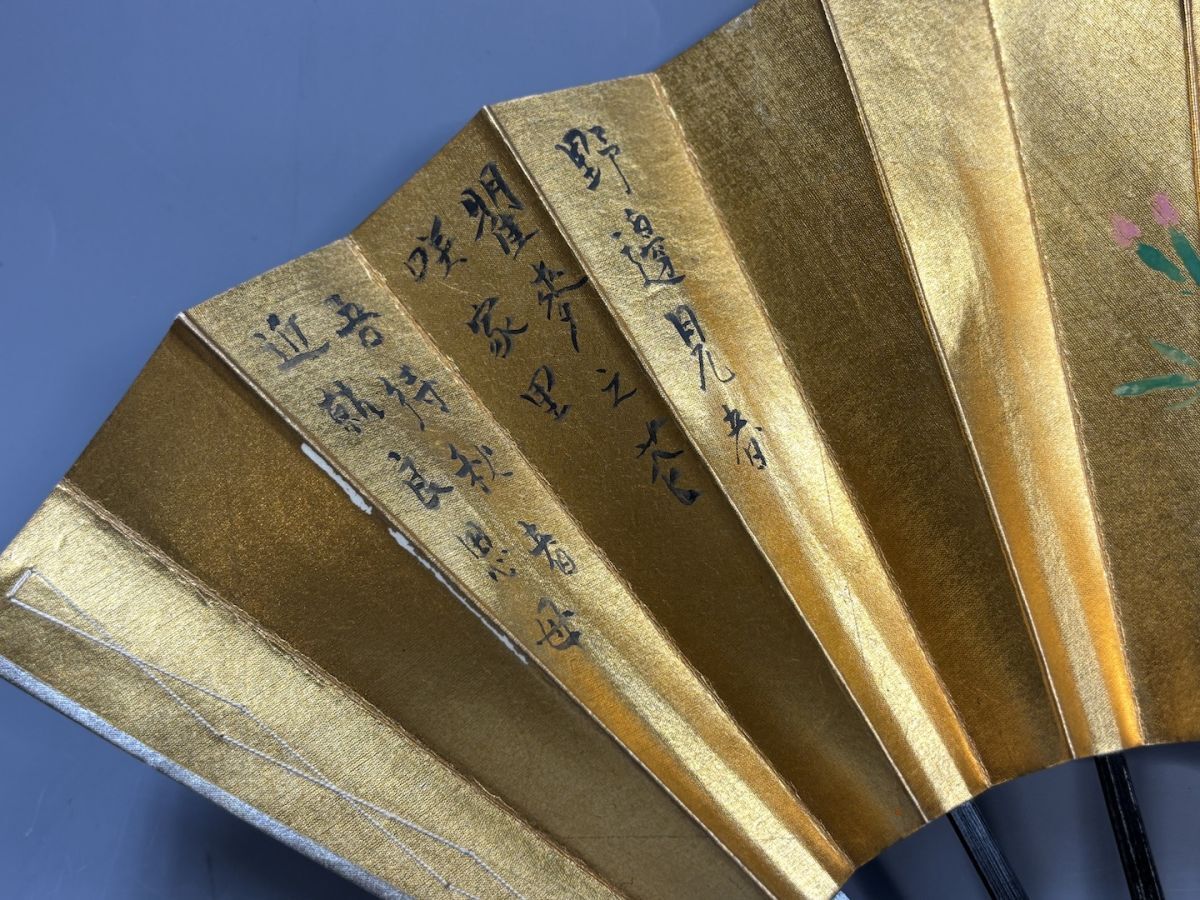 野邊見者
瞿麦之花
咲家里
吾待秋者
近就良思母